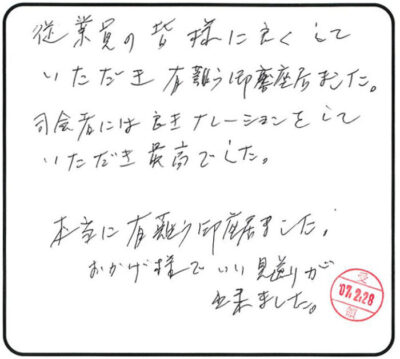 従業員の皆様に良くして
いただき有難う御座居ました。
司会者には良きナレーションをして
いただき最高でした。
本当に有難う御座居ました。
おかげ様でいい見送りが
出来ました。
受
07.2.28
領